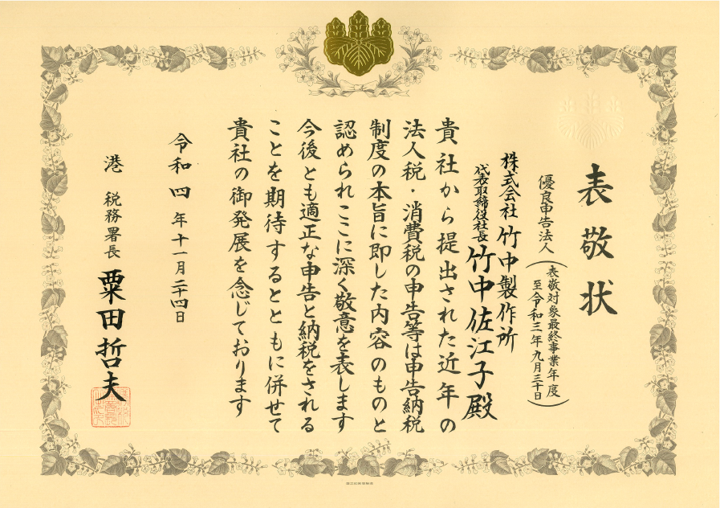 表敬状
優良申告法人(表敬対象最終事業年度
至令和三年九月三十日)
株式会社 竹中製作所
代表取締役社長 竹中佐江子殿
貴社から提出された近年の
法人税・消費税の申告等は申告納税
制度の本旨に即した内容のものと
認められここに深く敬意を表します
今後とも適正な申告と納税をされる
ことを期待するとともに併せて
貴社の御発展を念じております
令和四年十一月二十四日
港 税務署長 粟田哲夫